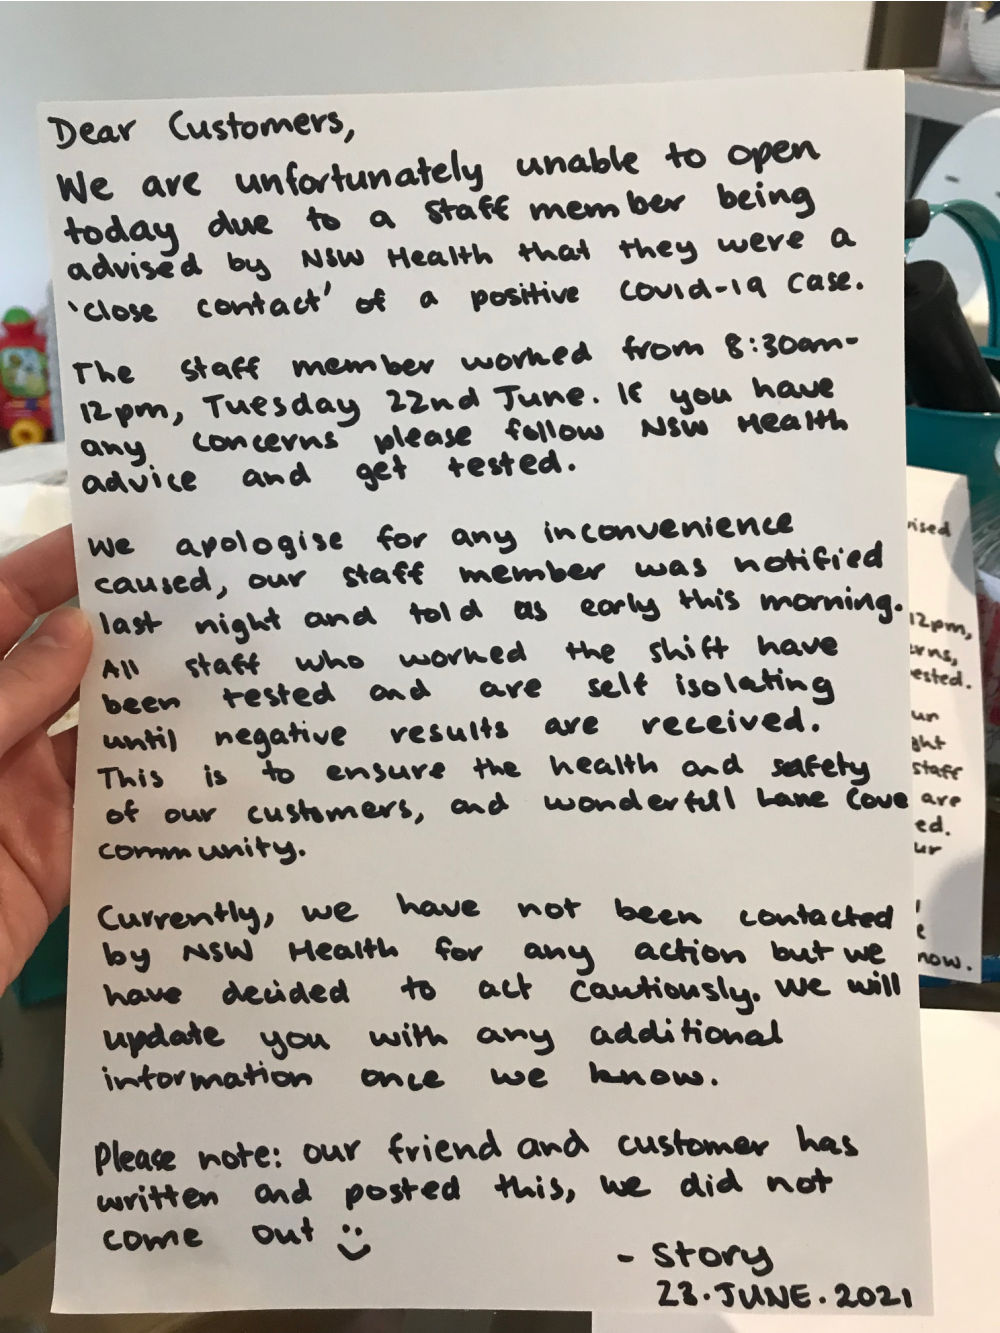 Dear Customers,
We are unfortunately unable to open
today due to a staff member being
advised by NSW Health that they were a
'close contact' of a positive Covid-19 case.
The staff member worked from 8:30am-
12pm, Tuesday 22nd June. If you have
any concerns please follow NSW Health
advice and get tested.
We apologise for any inconvenience
caused, our staff member was notified
last night and told as early this morning.
All staff who worked the shift have
been tested and are self isolating
until negative results are received.
This is to ensure the health and safety
of our customers, and wonderfull Lane Cove
community.
Currently, we have not been contacted
by NSW Health for any action but we
have decided to act cautiously. We will
update you with any additional
information once we know.
Please note: our friend and customer has
written and posted this, we did not
come out :)
- Story
23.JUNE.2021
12pm,
staff
are
now.